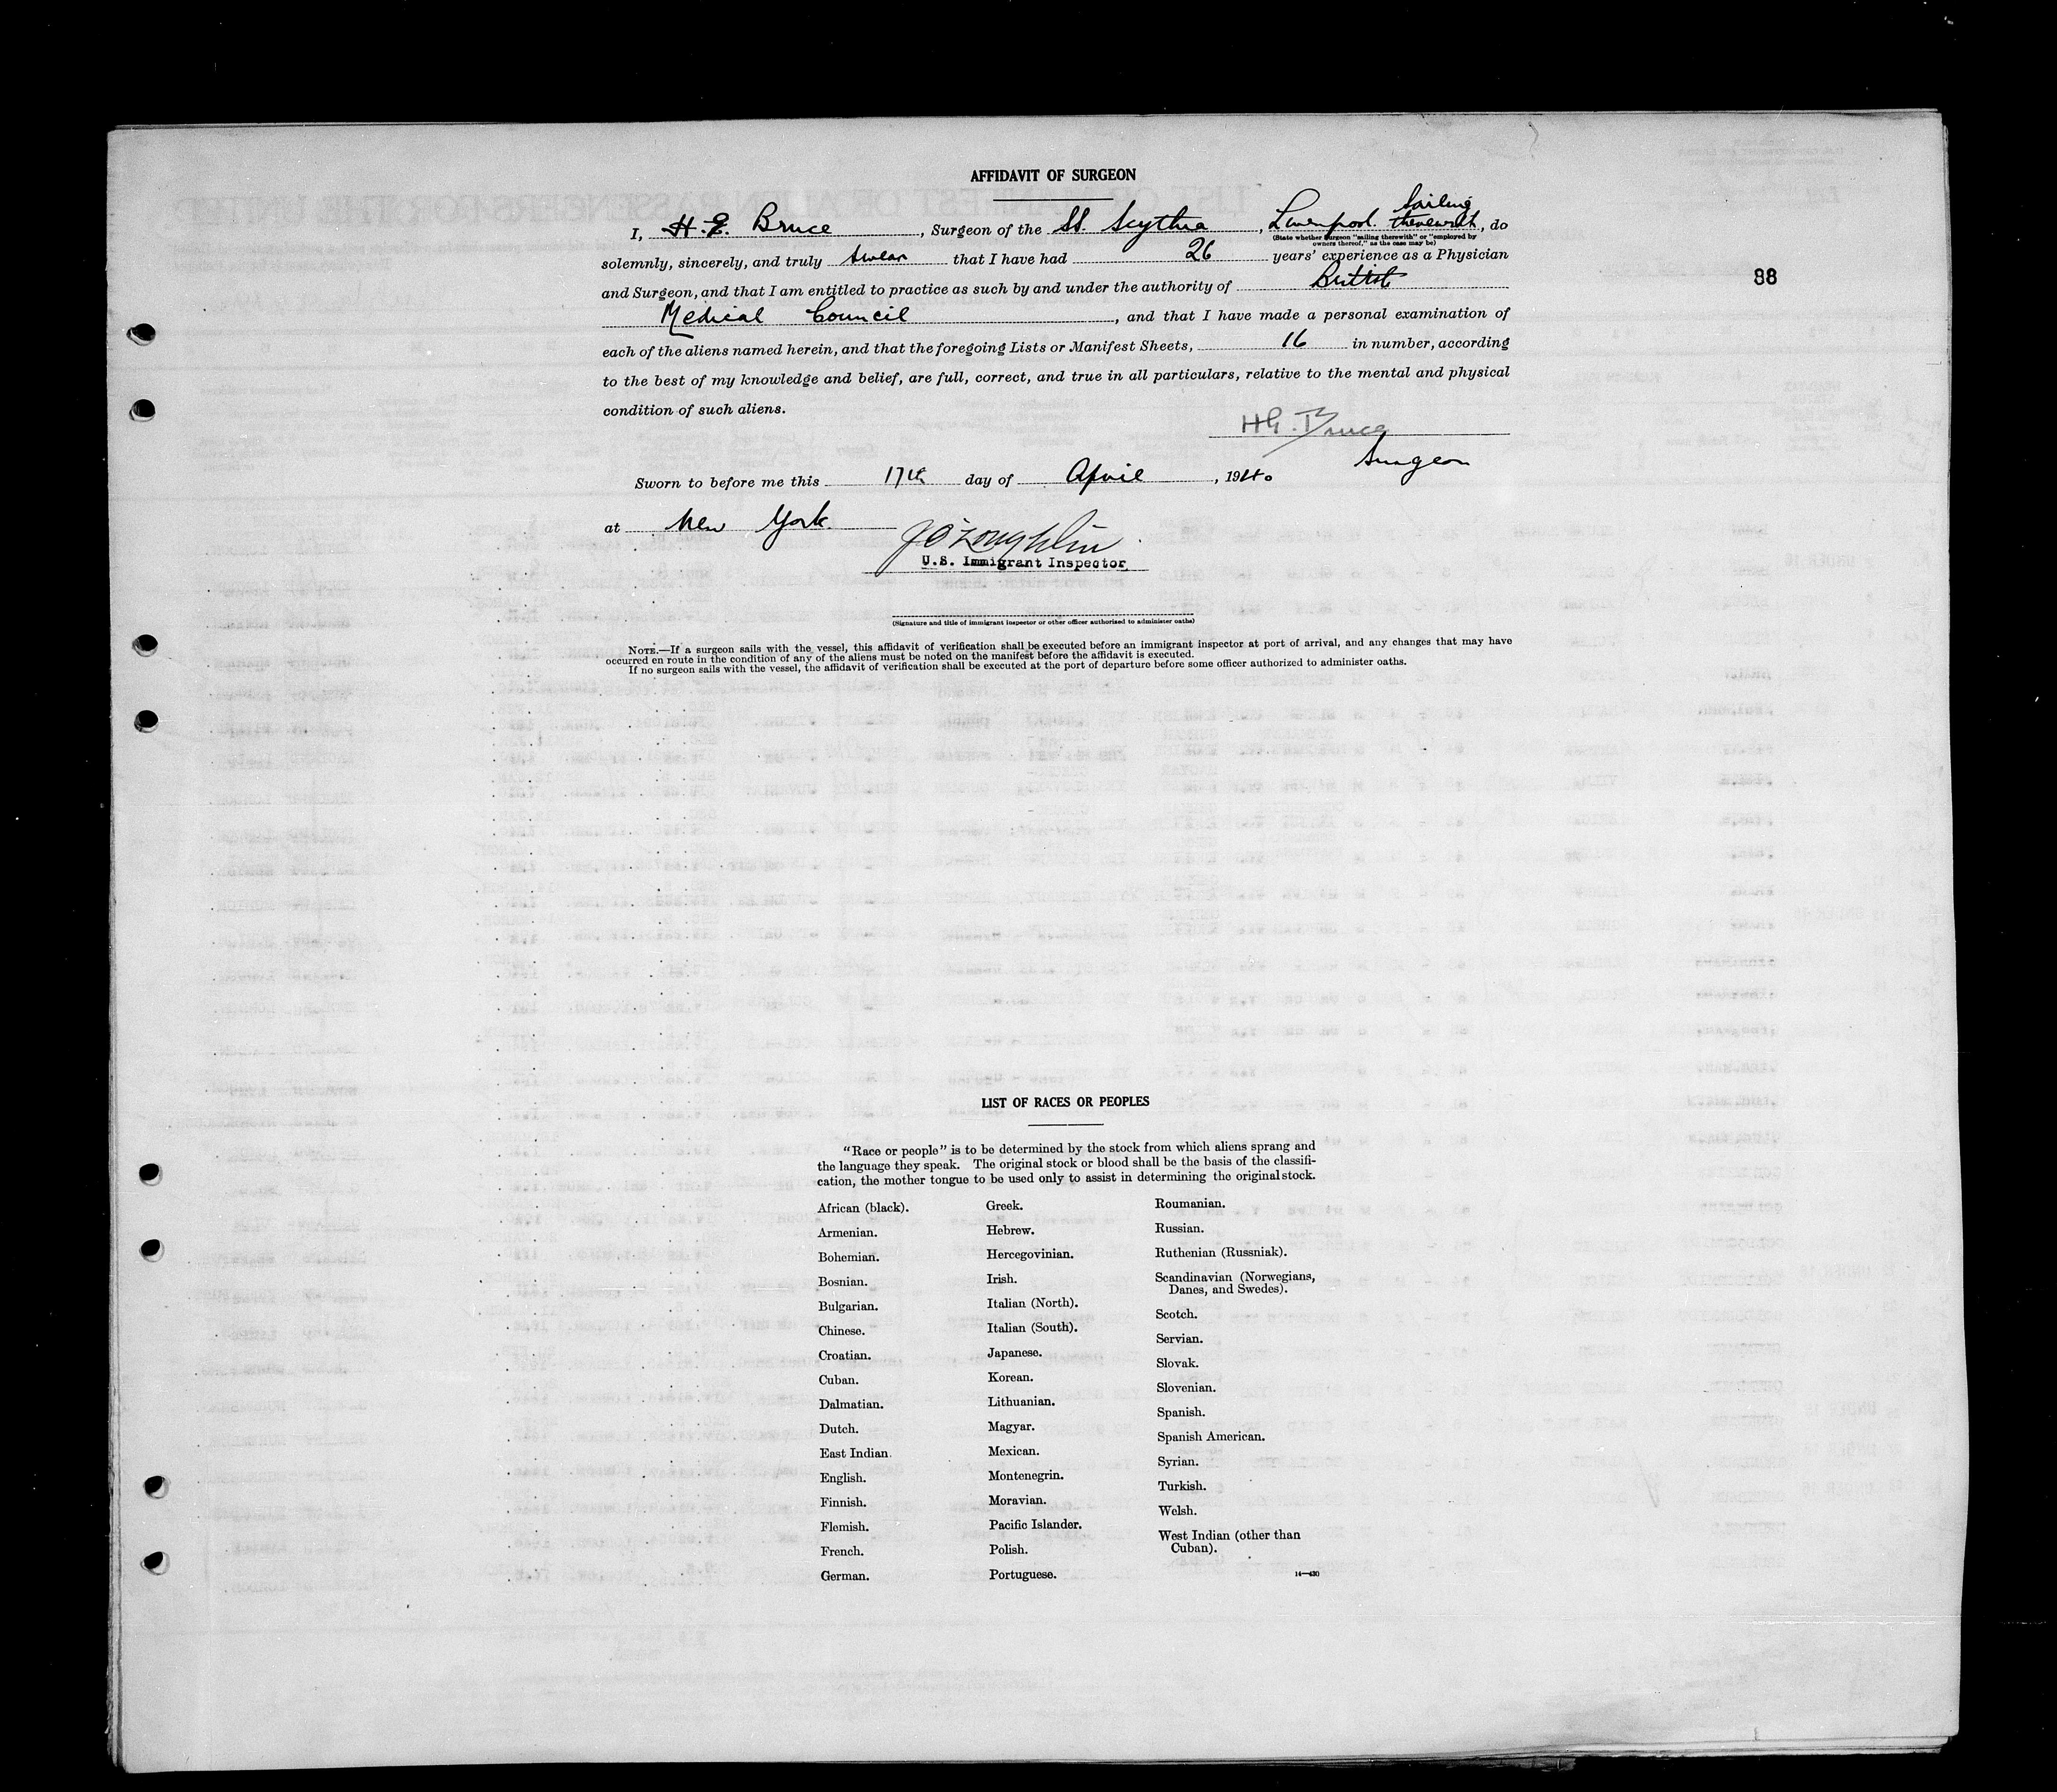 AFFIDAVIT OF SURGEON
I, H. G. Bruce, Surgeon of the SS. Scythia, Liverpool. Sailing therewith, do
(State whether surgeon "sailing therewith" or "employed by
owners thereof," as the case may be)
solemnly, sincerely, and truly swear that I have had 26 years' experience as a Physician
88
and Surgeon, and that I am entitled to practice as such by and under the authority of British
Medical Council, and that I have made a personal examination of
each of the aliens named herein, and that the foregoing Lists or Manifest Sheets, 16 in number, according
to the best of my knowledge and belief, are full, correct, and true in all particulars, relative to the mental and physical
condition of such aliens.
HG. Bruce
Surgeon
Sworn to before me this 17th day of April, 1940
at New York.
J O'Loughlin
U.S. Immigrant Inspector
(Signature and title of immigrant inspector or other officer authorized to administer oaths)
NOTE.—If a surgeon sails with the vessel, this affidavit of verification shall be executed before an immigrant inspector at port of arrival, and any changes that may have
occurred en route in the condition of any of the aliens must be noted on the manifest before the affidavit is executed.
If no surgeon sails with the vessel, the affidavit of verification shall be executed at the port of departure before some officer authorized to administer oaths.
LIST OF RACES OR PEOPLES
"Race or people" is to be determined by the stock from which aliens sprang and
the language they speak. The original stock or blood shall be the basis of the classifi-
cation, the mother tongue to be used only to assist in determining the original stock.
African (black).
Armenian.
Bohemian.
Bosnian.
Bulgarian.
Chinese.
Croatian.
Cuban.
Dalmatian.
Dutch.
East Indian.
English.
Finnish.
Flemish.
French.
German.
Greek.
Hebrew.
Hercegovinian.
Irish.
Italian (North).
Italian (South).
Japanese.
Korean.
Lithuanian.
Magyar.
Mexican.
Montenegrin.
Moravian.
Pacific Islander.
Polish.
Portuguese.
Roumanian.
Russian.
Ruthenian (Russniak).
Scandinavian (Norwegians,
Danes, and Swedes).
Scotch.
Servian.
Slovak.
Slovenian.
Spanish.
Spanish American.
Syrian.
Turkish.
Welsh.
West Indian (other than
Cuban).
14—430